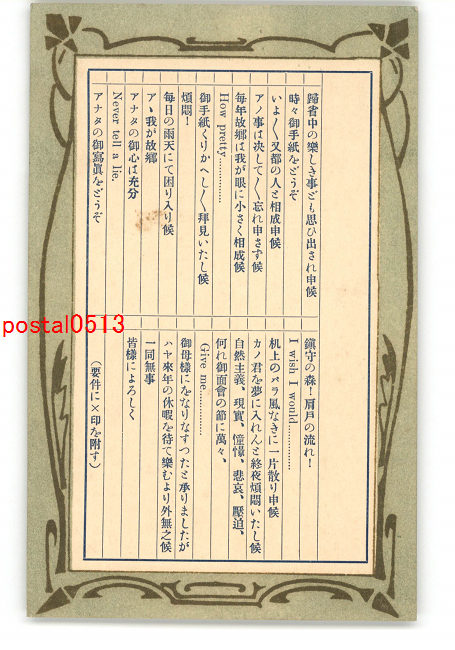 歸省中の樂しき事ども思ひ出され申候
時々御手紙をどうぞ
いよ〱又都の人と相成申候
アノ事は决して〱忘れ申さず候
毎年故郷は我が眼に小さく相成候
How pretty…………
御手紙くりかへし〱拜見いたし候
煩悶!
毎日の雨天にて困り入り候
アヽ我が故郷
アナタの御心は充分
Never tell a lie.
アナタの御寫眞をどうぞ
鎭守の森!肩戸の流れ!
I wish I would…………
机上のバラ風なきに一片散り申候
カノ君を夢に入れんと終夜煩悶いたし候
自然主義、現實、憧憬、悲哀、壓迫、
何れ御面會の節に萬々、
Give me…………
御母樣にをなりなすつたと承りましたが
ハヤ來年の休暇を待て樂むより外無之候
一同無事
皆樣によろしく
(要件に×印を附す)
postal0513